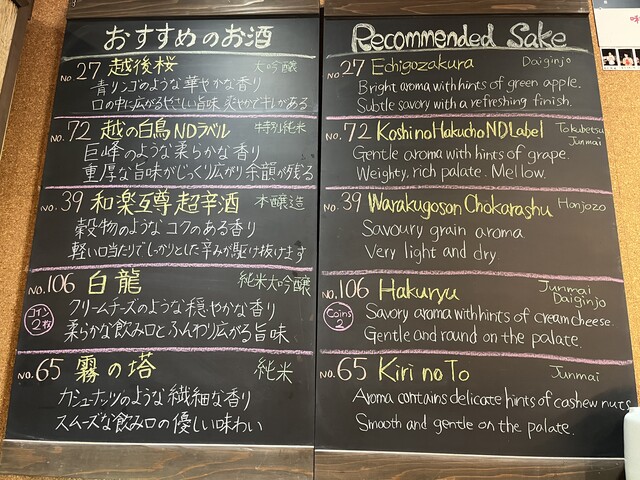 おすすめのお酒
No.27 越後桜 大吟醸
青リンゴのような華やかな香り
口の中に広がるやさしい旨味 爽やかでキレがある
No.72 越の白鳥NDラベル 特別純米
巨峰のような柔らかな香り
重厚な旨味がじっくり広がり余韻が残る
No.39 和楽互尊 超辛酒 本醸造
穀物のようなコクのある香り
軽い口当たりでしっかりとした辛みが駆け抜けます
No.106 白龍 純米大吟醸
コイン2枚
クリームチーズのような穏やかな香り
柔らかな飲み口とふんわり広がる旨味
No.65 霧の塔 純米
カシューナッツのような繊細な香り
スムーズな飲み口の優しい味わい
Recommended Sake
No.27 Echigozakura Daiginjo
Bright aroma with hints of green apple.
Subtle savory with a refreshing finish.
No.72 Koshi no Hakucho ND Label Tokubetsu Junmai
Gentle aroma with hints of grape.
Weighty, rich palate. Mellow.
No.39 Warakugoson Chokarashu Honjozo
Savoury grain aroma
Very light and dry
No.106 Hakuryu Junmai Daiginjo
Coins 2
Savory aroma with hints of cream cheese.
Gentle and round on the palate.
No.65 Kiri no To Junmai
Aroma contains delicate hints of cashew nuts
Smooth and gentle on the palate.